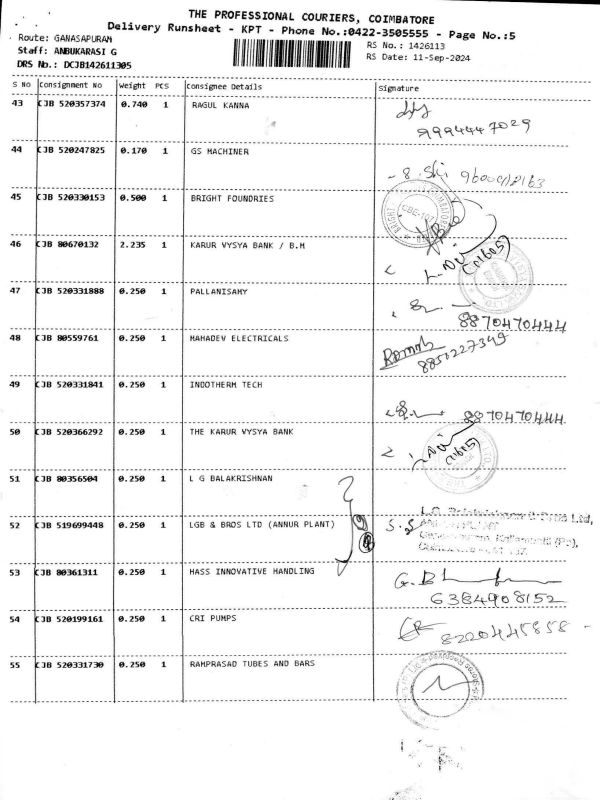 THE PROFESSIONAL COURIERS, COIMBATORE
Delivery Runsheet - KPT - Phone No.:0422-3505555 - Page No.:5
Route: GANASAPURAM
RS No.: 1426113
Staff: ANBUKARASI G
RS Date: 11-Sep-2024
DRS No.: DCJB142611305
S No Consignment No Weight PCS Consignee Details Signature
43 CJB 520357374 0.740 1 RAGUL KANNA
9994447029
44 CJB 520247825 0.170 1 GS MACHINER
45 CJB 520330153 0.500 1 BRIGHT FOUNDRIES
46 CJB 80670132 2.235 1 KARUR VYSYA BANK / B.M
(11605)
47 CJB 520331888 0.250 1 PALLANISAMY
8870470444
48 CJB 80559761 0.250 1 MAHADEV ELECTRICALS
8850227349
49 CJB 520331841 0.250 1 INDOTHERM TECH
8870470444
50 CJB 520366292 0.250 1 THE KARUR VYSYA BANK
(11605)
51 CJB 80356504 0.250 1 L G BALAKRISHNAN
52 CJB 519699448 0.250 1 LGB & BROS LTD (ANNUR PLANT)
53 CJB 80361311 0.250 1 HASS INNOVATIVE HANDLING
6384908152
54 CJB 520199161 0.250 1 CRI PUMPS
8220445858
55 CJB 520331730 0.250 1 RAMPRASAD TUBES AND BARS